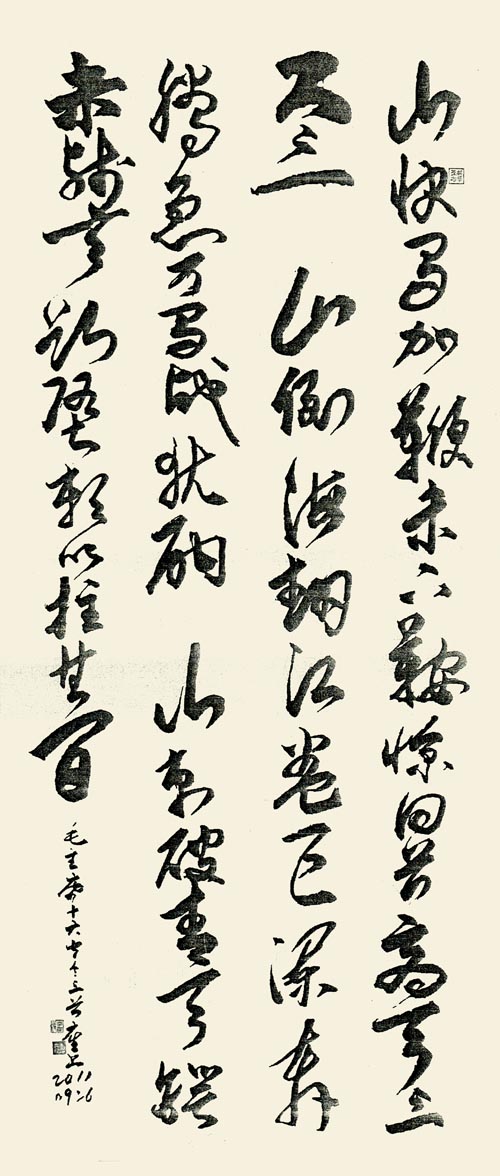 山快马加鞭未下鞍惊回首离天三
尺三 山倒海翻江卷巨澜奔
腾急万马战犹酣 山刺破青天锷
未残天欲堕赖以拄其间
毛主席十六字令三首
2011
09 26